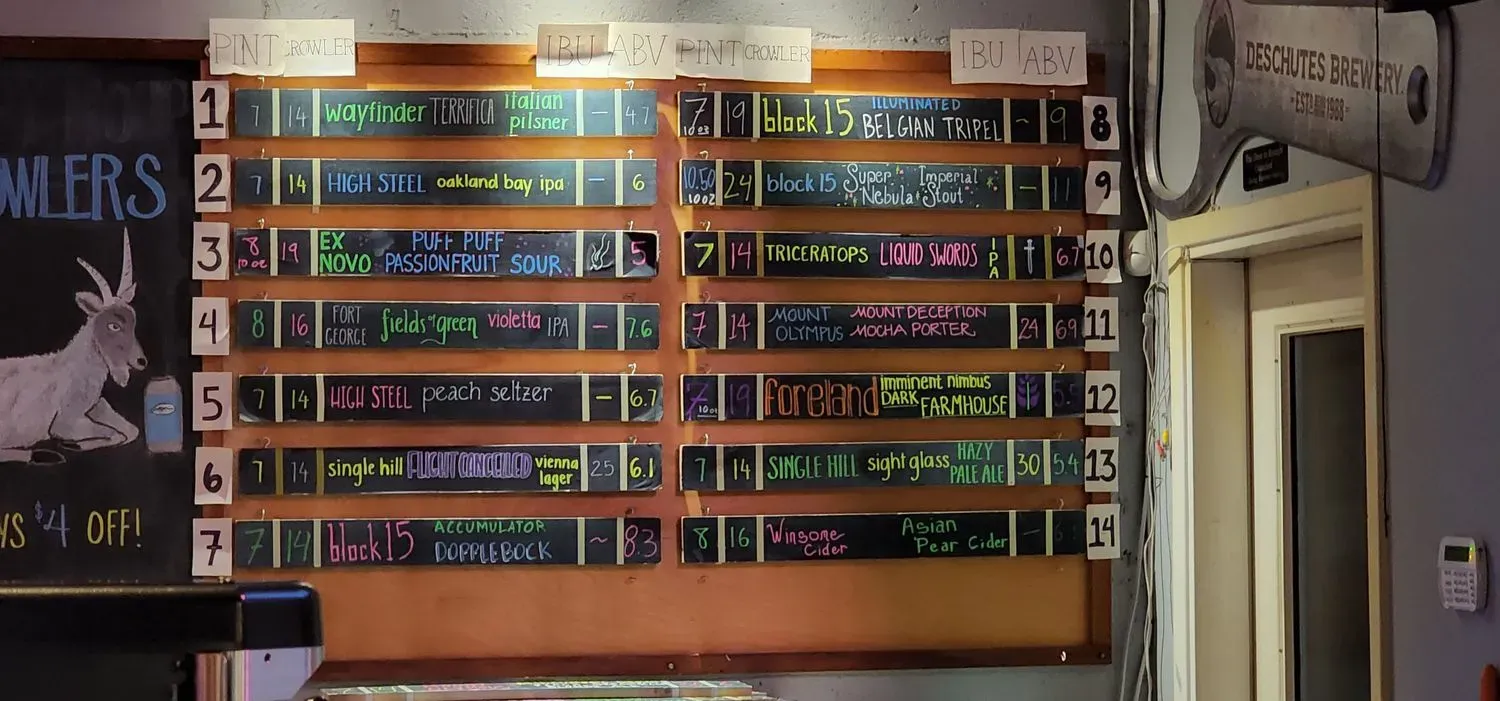 PINT CROWLER IBU ABV PINT CROWLER IBU ABV
1 7 14 wayfinder TERRIFICA italian pilsner — 4.7
2 7 14 HIGH STEEL oakland bay ipa — 6
3 8 10 oz 19 EX NOVO PUFF PUFF PASSIONFRUIT SOUR 5
4 8 16 FORT GEORGE fields of green violetta IPA — 7.6
5 7 14 HIGH STEEL peach seltzer — 6.7
6 7 14 single hill FLIGHT CANCELLED vienna lager 25 6.1
7 7 14 block 15 ACCUMULATOR DOPPLEBOCK ~ 8.3
7 10 oz 19 block 15 ILLUMINATED BELGIAN TRIPEL ~ 9 8
10.50 10 oz 24 block 15 Super Nebula Imperial Stout — 11 9
7 14 TRICERATOPS LIQUID SWORDS IPA 6.7 10
7 14 MOUNT OLYMPUS MOUNT DECEPTION MOCHA PORTER 24 69 11
7 10 oz 19 foreland imminent nimbus DARK FARMHOUSE 5.5 12
7 14 SINGLE HILL sight glass HAZY PALE ALE 30 5.4 13
8 16 Winsome Cider Asian Pear Cider — 14
WLERS
$4 OFF!
DESCHUTES BREWERY.
EST. 1988